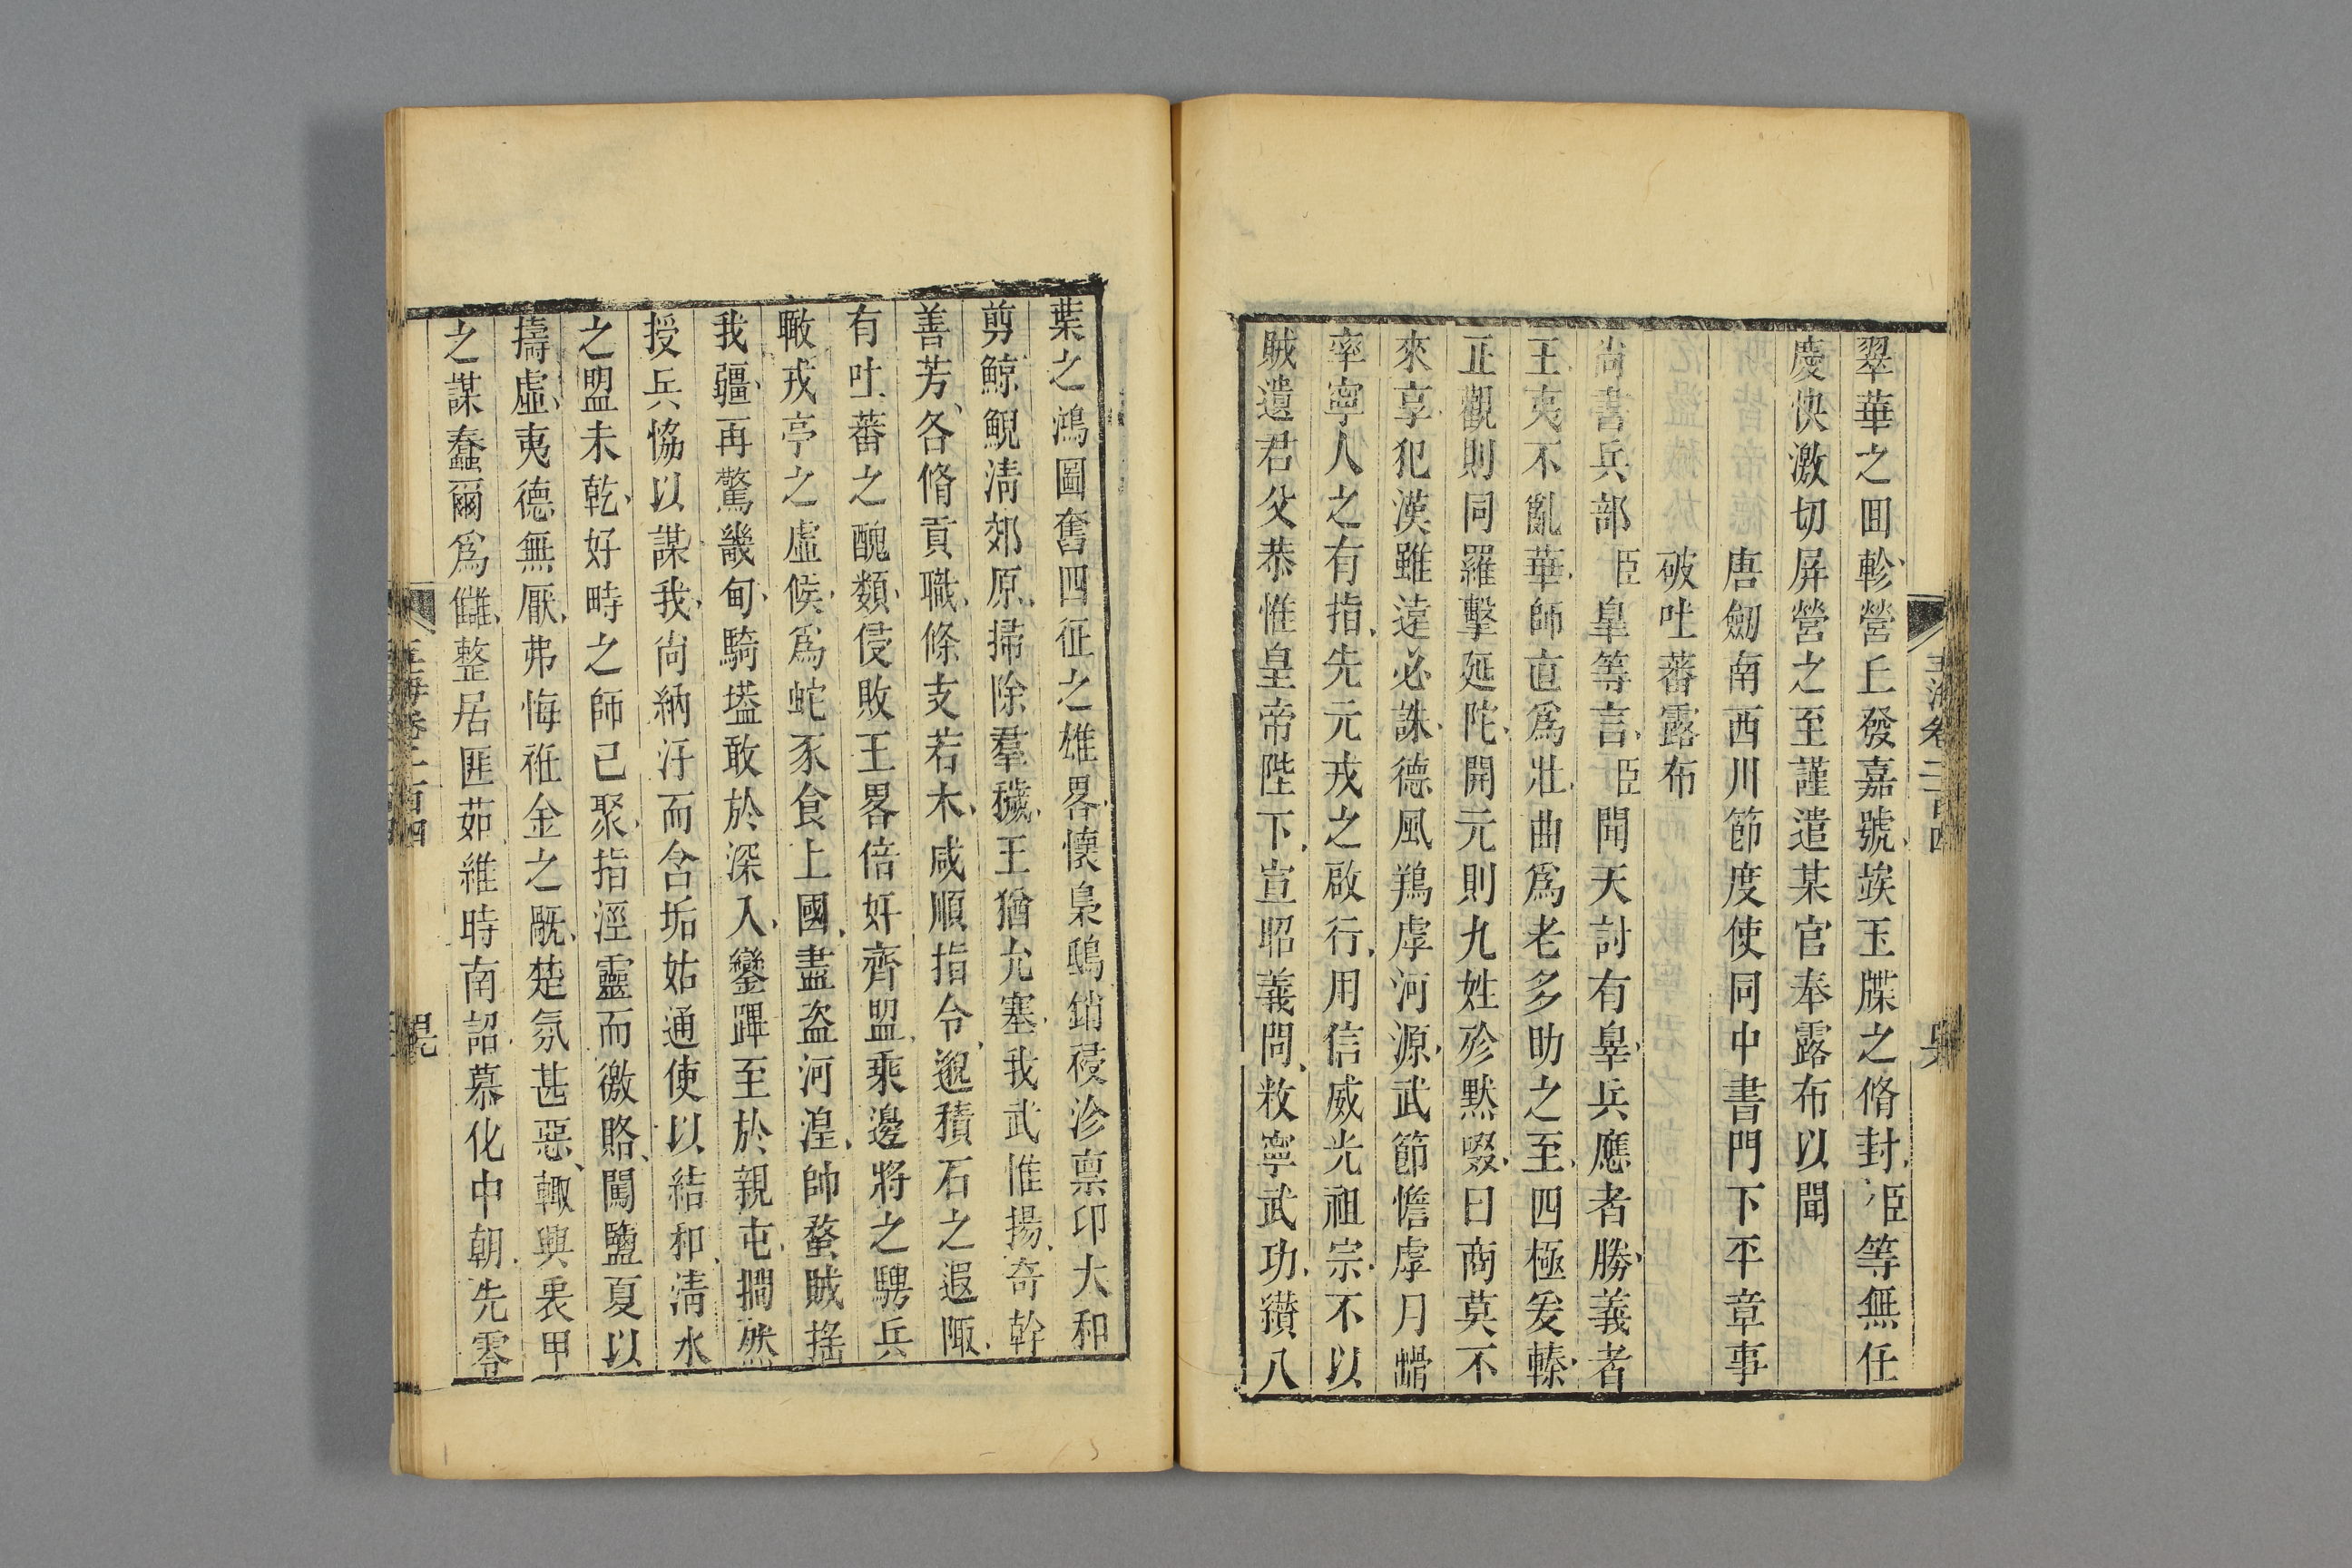 翠華之囬軫營丘發嘉號竢玉牒之脩封臣等無任
慶快激切屏營之至謹遣某官奉露布以聞
唐劒南西川節度使同中書門下平章事
破吐蕃露布
尚書兵部臣臯等言臣聞天討有辠兵應者勝義者
王夷不亂華師直爲壯曲爲老多助之至四極爰轃
正觀則同羅擊延陀開元則九姓殄默啜曰商莫不
來享犯漢雖遠必誅德風鶈虖河源武節憺虖月𡿖
率寧人之有指先元戎之啟行用信威光祖宗不以
賊遺君父恭惟皇帝陛下宣昭義問敉寧武功纘八
葉之鴻圖奮四征之雄畧懷梟鴟銷祲沴禀卬大和
剪鯨鯢淸郊原掃除羣穢王猶允塞我武惟揚奇幹
善芳各脩貢職條支若木咸順指令邈積石之遐陬
有吐蕃之醜類侵敗王畧倍奸齊盟乘邊將之騁兵
瞰戎亭之虛候爲蛇豕食上國盡盜河湟帥蝥賊搖
我疆再驚畿甸騎墭敢於深入鑾蹕至於親屯撊然
授兵恊以謀我尙納汙而含垢姑通使以結和淸水
之盟未乾好畤之師已聚指涇靈而徼賂闖鹽夏以
擣虛夷德無厭弗悔袵金之厩楚氛甚惡輙興裹甲
之謀蠢爾爲讎整居匪茹維時南詔慕化中朝先零
玉海卷二百四